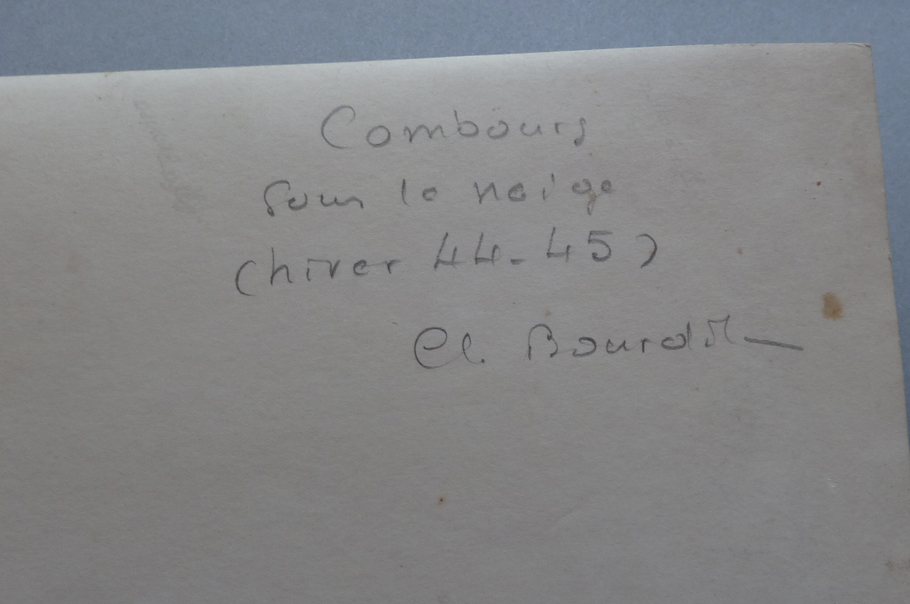 Combourg
sous la neige
(hiver 44-45)
Cl. Bourdil